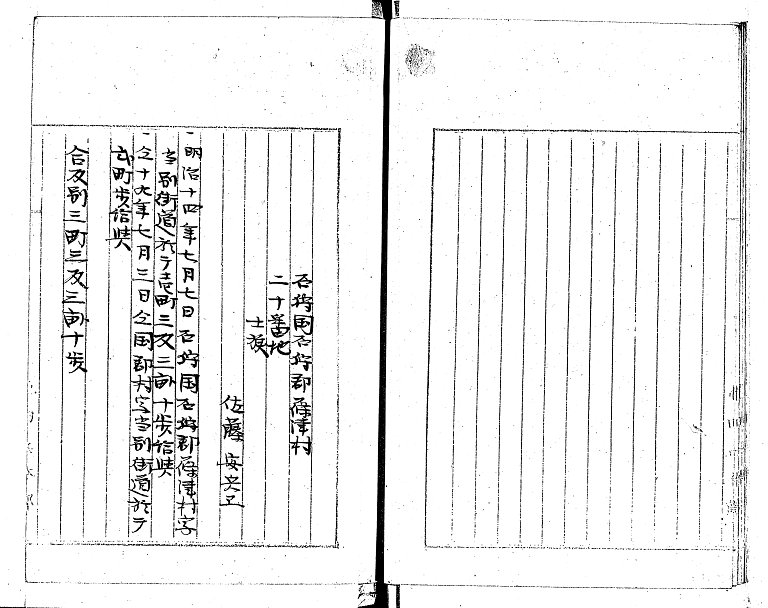 石狩国石狩郡篠津村
二十番地
士族
佐藤 安之正
一明治十四年七月七日石狩国石狩郡篠津村字
当別街道於テ壱町三反三畝十歩給与
一仝十九年七月三日仝国郡村字当別街道於テ
弐町歩給与
合反別三町三反三畝十歩